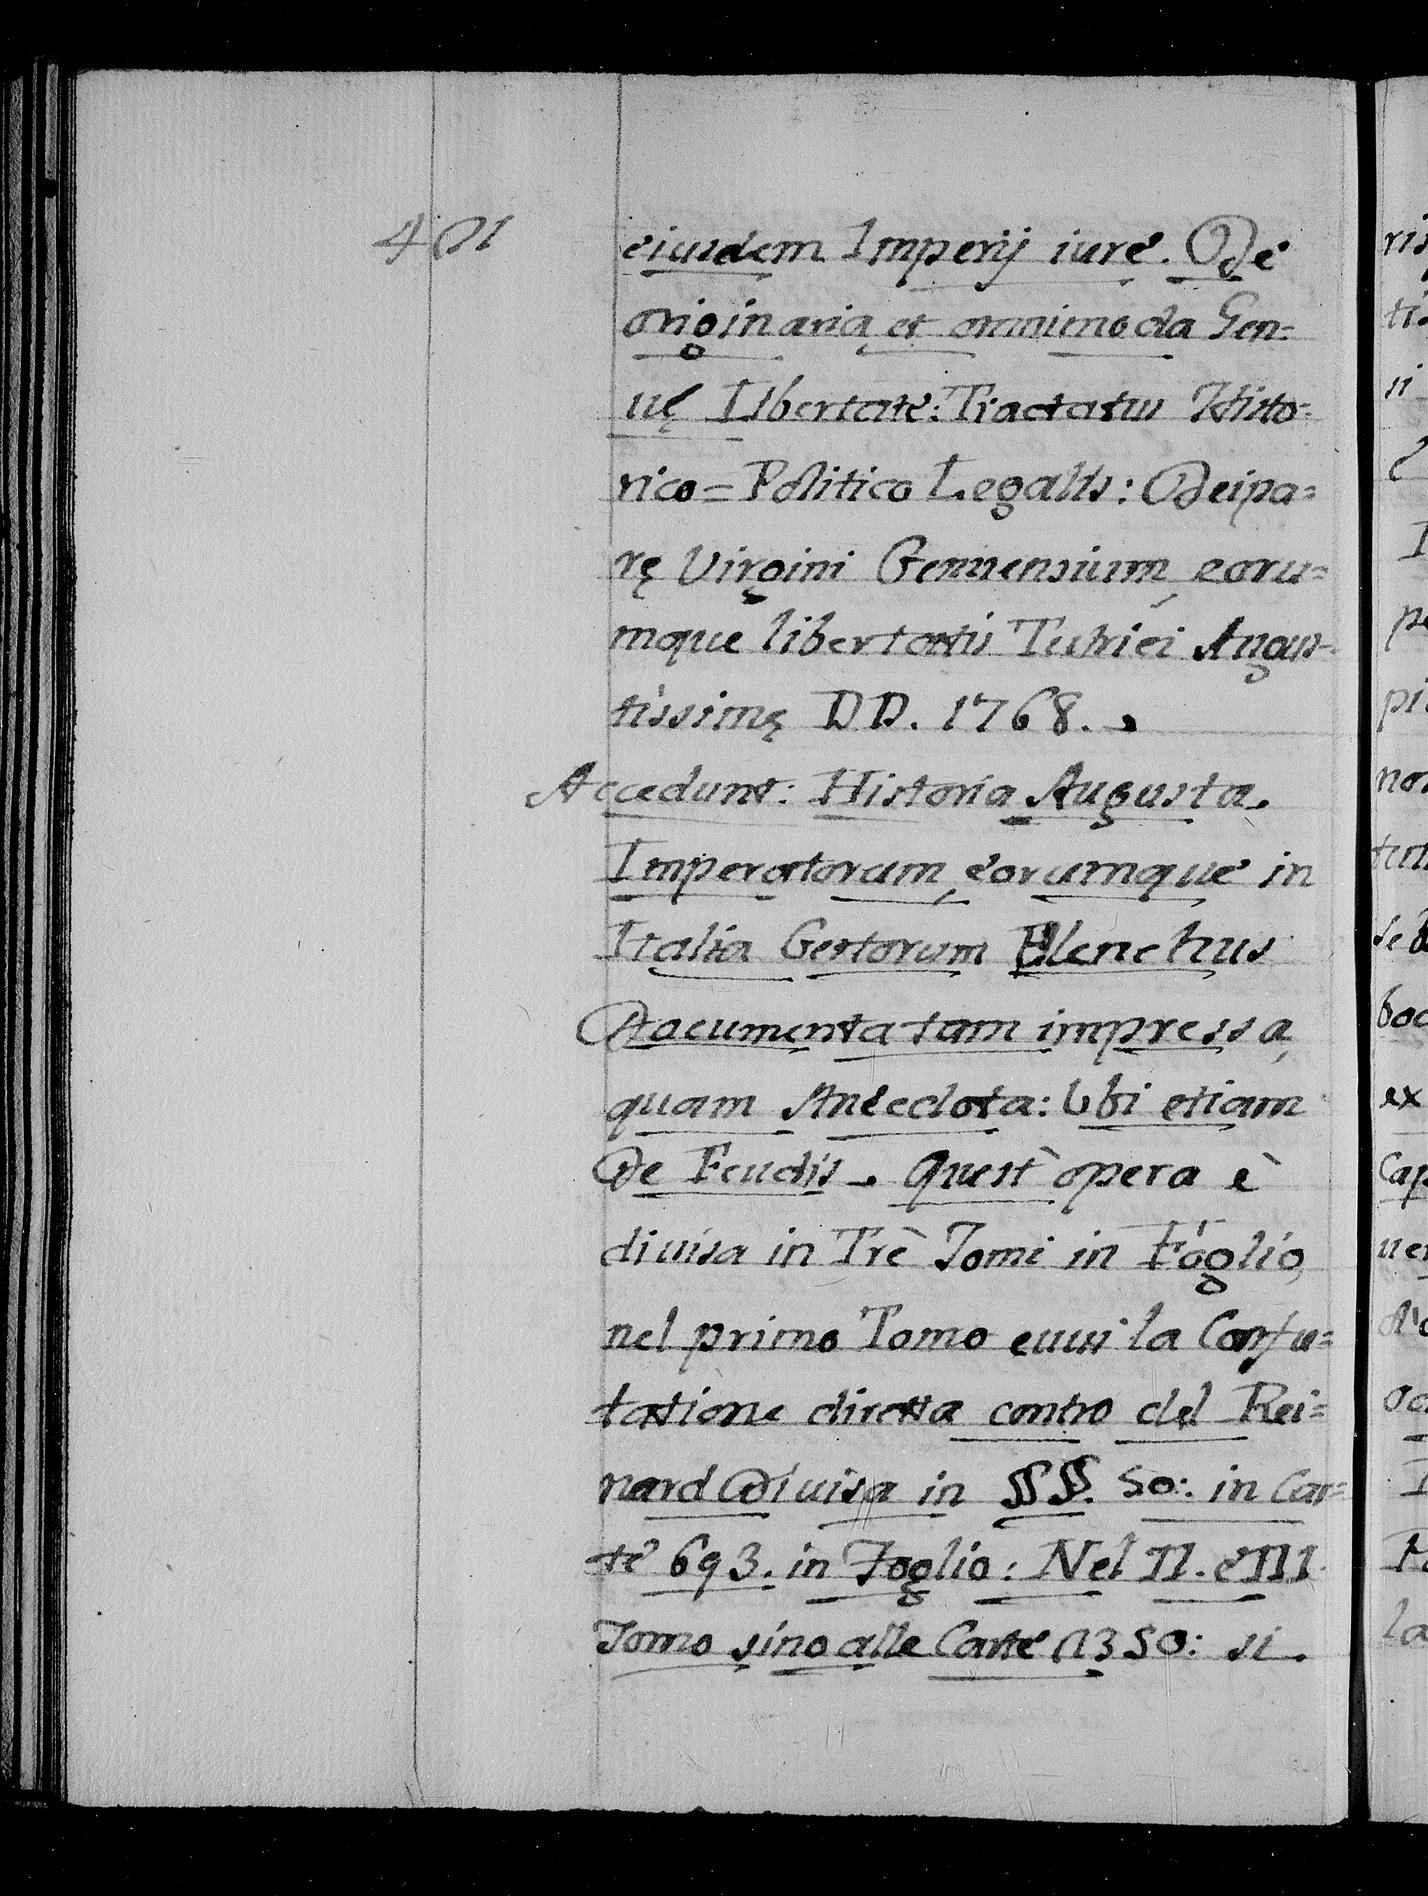 401
eiusdem Imperij iure. De
originaria et omnimoda Gen=
uę Libertate: Tractatus Histo=
rico=Politico Legalis: Deipa=
rę Virgini Genuensium, eoru=
mque libertatis Tutrici Augus=
tissimę DD. 1768.
Accedunt: Historia Augusta.
Imperatorum, eorumque in
Italia Gestorum Elenchus
Documenta tam impressa,
quam Anecdota: Ubi etiam
De Feudis. Quest' opera è
diuisa in Trè Tomi in Foglio,
nel primo Tomo euui la Confu=
tatione diretta contro del Rei=
nard Diuisa in §§. 50: in Car=
te 693. in Foglio: Nel II. e III.
Tomo sino alle Carte 1350: si